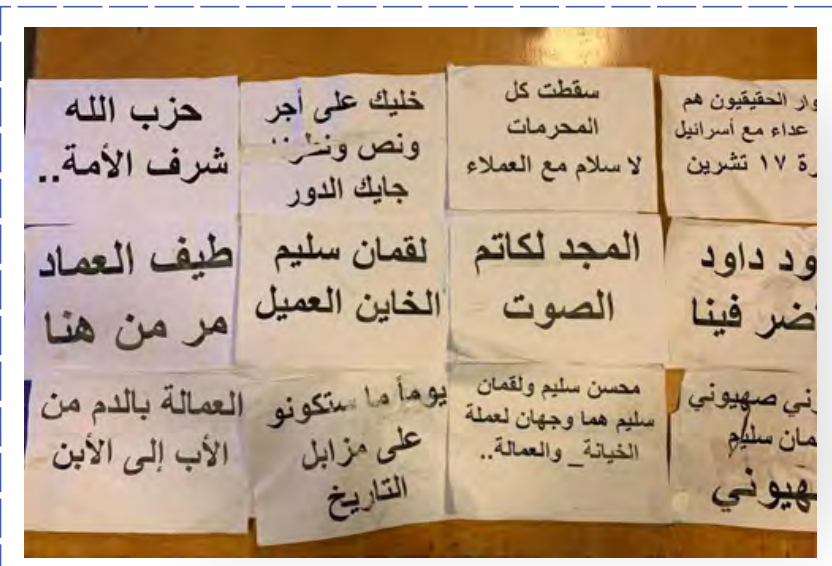 وار الحقيقيون هم
عداء مع أسرائيل
رة ١٧ تشرين
سقطت كل
المحرمات
لا سلام مع العملاء
خليك على أجر
ونص
جايك الدور
حزب الله
شرف الأمة..
ود داود
ضر فينا
المجد لكاتم
الصوت
لقمان سليم
الخاين العميل
طيف العماد
مر من هنا
ني صهيوني
مان سليم
هيوني
محسن سليم ولقمان
سليم هما وجهان لعملة
الخيانة_ والعمالة..
يوماً ما ستكونو
على مزابل
التاريخ
العمالة بالدم من
الأب إلى الأبن